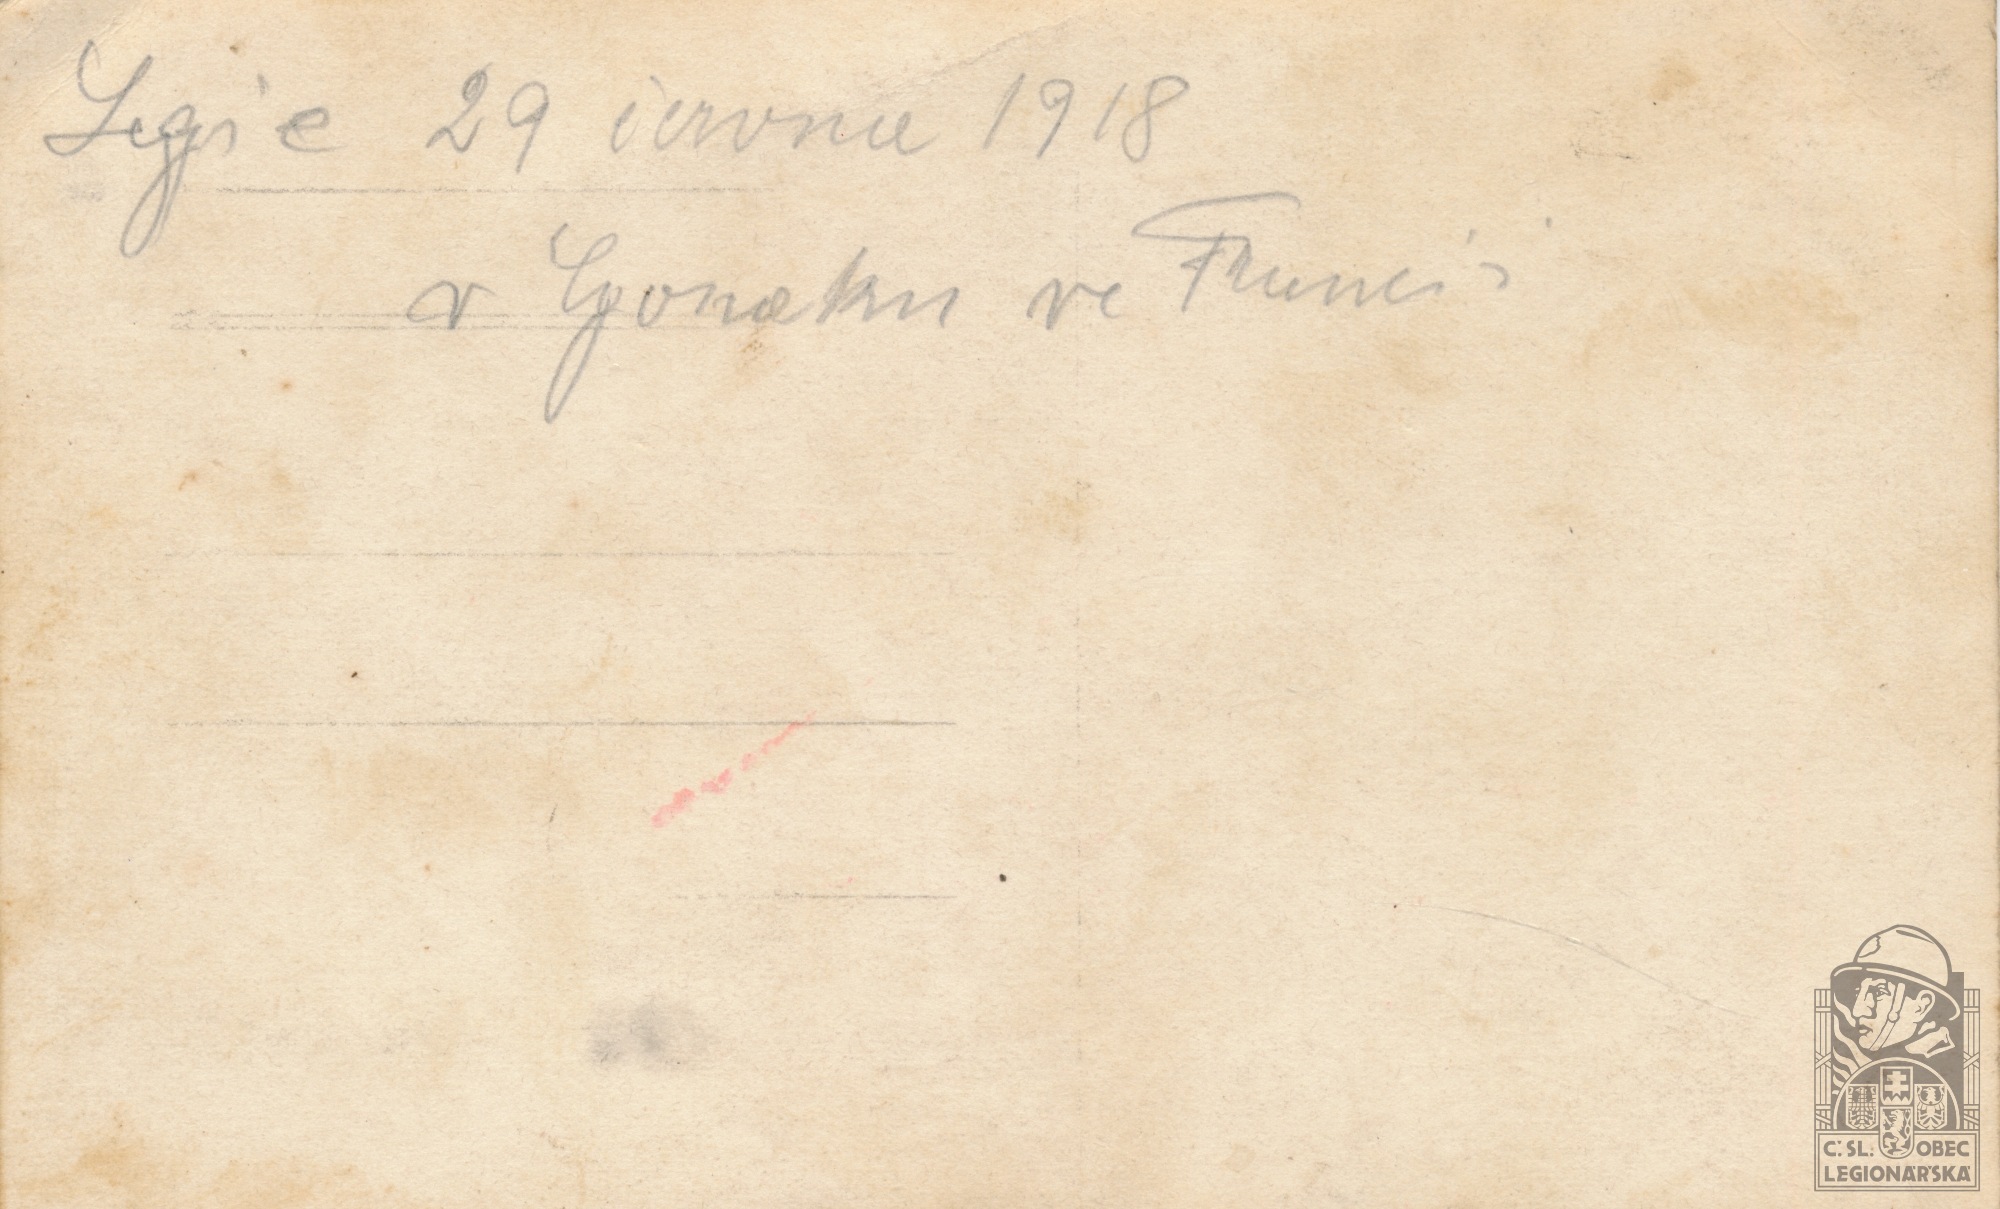 Legie 29 června 1918
v Cgonaku ve Francii
Č.SL. OBEC
LEGIONÁŘSKÁ